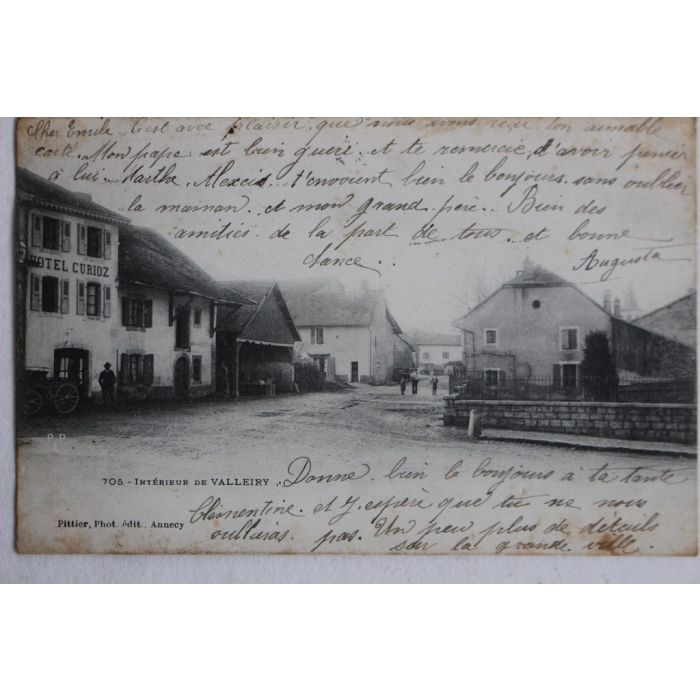 Cher Emile. C'est avec plaisir que nous avons reçu ton aimable
carte. Mon papa est bien guéri et te remercie, d'avoir penser
à lui. Marthe Alexcis. t'envoient bien le bonjours. sans oublier
la maman. et mon grand père. Bien des
amitiés de la part de tous. et bonne
chance.
Augusta
HOTEL CURIOZ
705 - INTÉRIEUR DE VALLEIRY
Donne bien le bonjours à ta tante
Clémentine. et J'espère que tu ne nous
oublieras pas. Un peu plus de détails
sur la grande ville.
Pittier, Phot. édit., Annecy